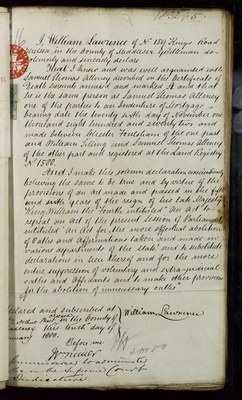 I, William Lawrence of No 189 Kings Road
Chelsea in the County of Middlesex Gentleman do
solemnly and sincerely declare
That I knew and was well acquainted with
Samuel Thomas Allney described in the Certificate of
Death hereunto annexed and marked A and that
he is the same person as Samuel Thomas Allney
one of the parties to an Indenture of Mortgage
bearing date the twenty sixth day of November one
thousand eight hundred and seventy two and
made between of the one part
and William Tilling and Samuel Thomas Allney
of the other part and registered at the Land Registry
No 1500.
And I make this solemn declaration conscientiously
believing the same to be true and by virtue of the
provisions of an act made and passed in the fifth
and sixth years of the reign of his late Majesty
King William the Fourth intituled "An Act to
repeal an act of the present Session of Parliament
intituled "An Act for the more effectual abolition
of Oaths and Affirmations taken and made in
various departments of the State and to substitute
declarations in lieu thereof and for the more
entire suppression of voluntary and extra-judicial
oaths and affidavits and to make other provisions
for the abolition of unnecessary oaths"
Declared and subscribed at
in the County of
the tenth day of
1880.
William Lawrence
Before me
A Commissioner to administer
Oaths in the Supreme Court
of Judicature